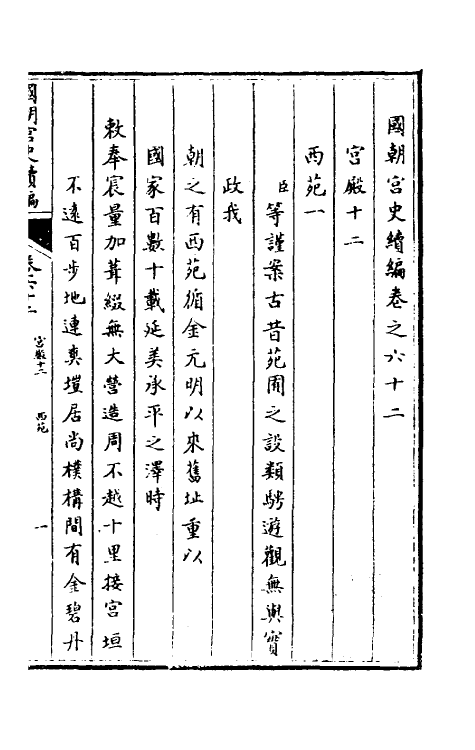 國朝宮史續編卷之六十二
宮殿十二
西苑一
臣等謹案古昔苑囿之設類騁遊觀無與實
政我
朝之有西苑循金元明以來舊址重以
國家百數十載延美承平之澤時
敕奉宸量加葺綴無大營造周不越十里接宮垣
不遠百步地連爽塏居尚樸構間有金碧丹
國朝宮史續編
卷六十二
宮殿十二
西苑
一